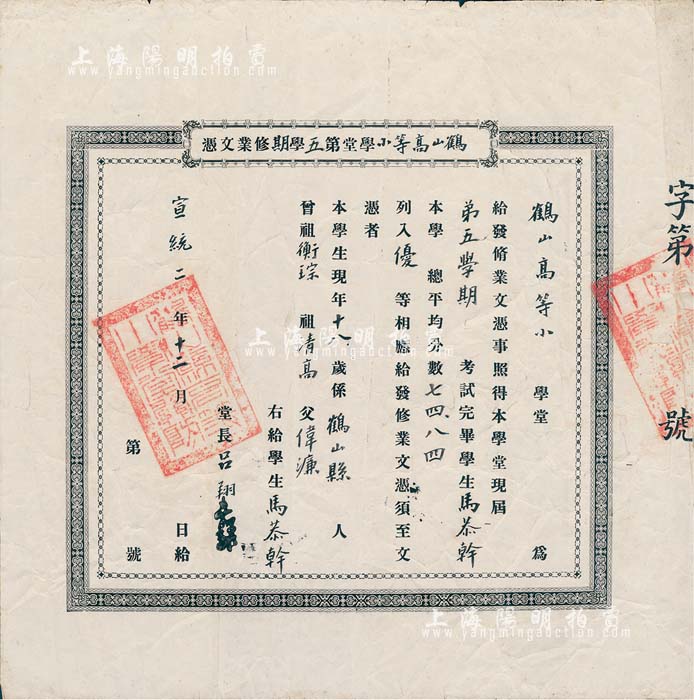 上海陽明拍賣
www.yangmingauction.com
鶴山高等小學堂第五學期修業文憑
字第 號
鶴山高等小 學堂 為
給發修業文憑事照得本學堂現屆
第五學期 考試完畢學生馬恭幹
本學 總平均分數七四、八四
列入優 等相應給發修業文憑須至文
憑者
本學生現年十八歲係鶴山縣 人
曾祖衡琮 祖清高 父偉濂
右給學生馬恭幹
堂長呂翔
宣統二年十二月 日給
第 號
上海陽明拍賣
www.yangmingauction.com
上海陽明拍賣
www.yangmingauction.com